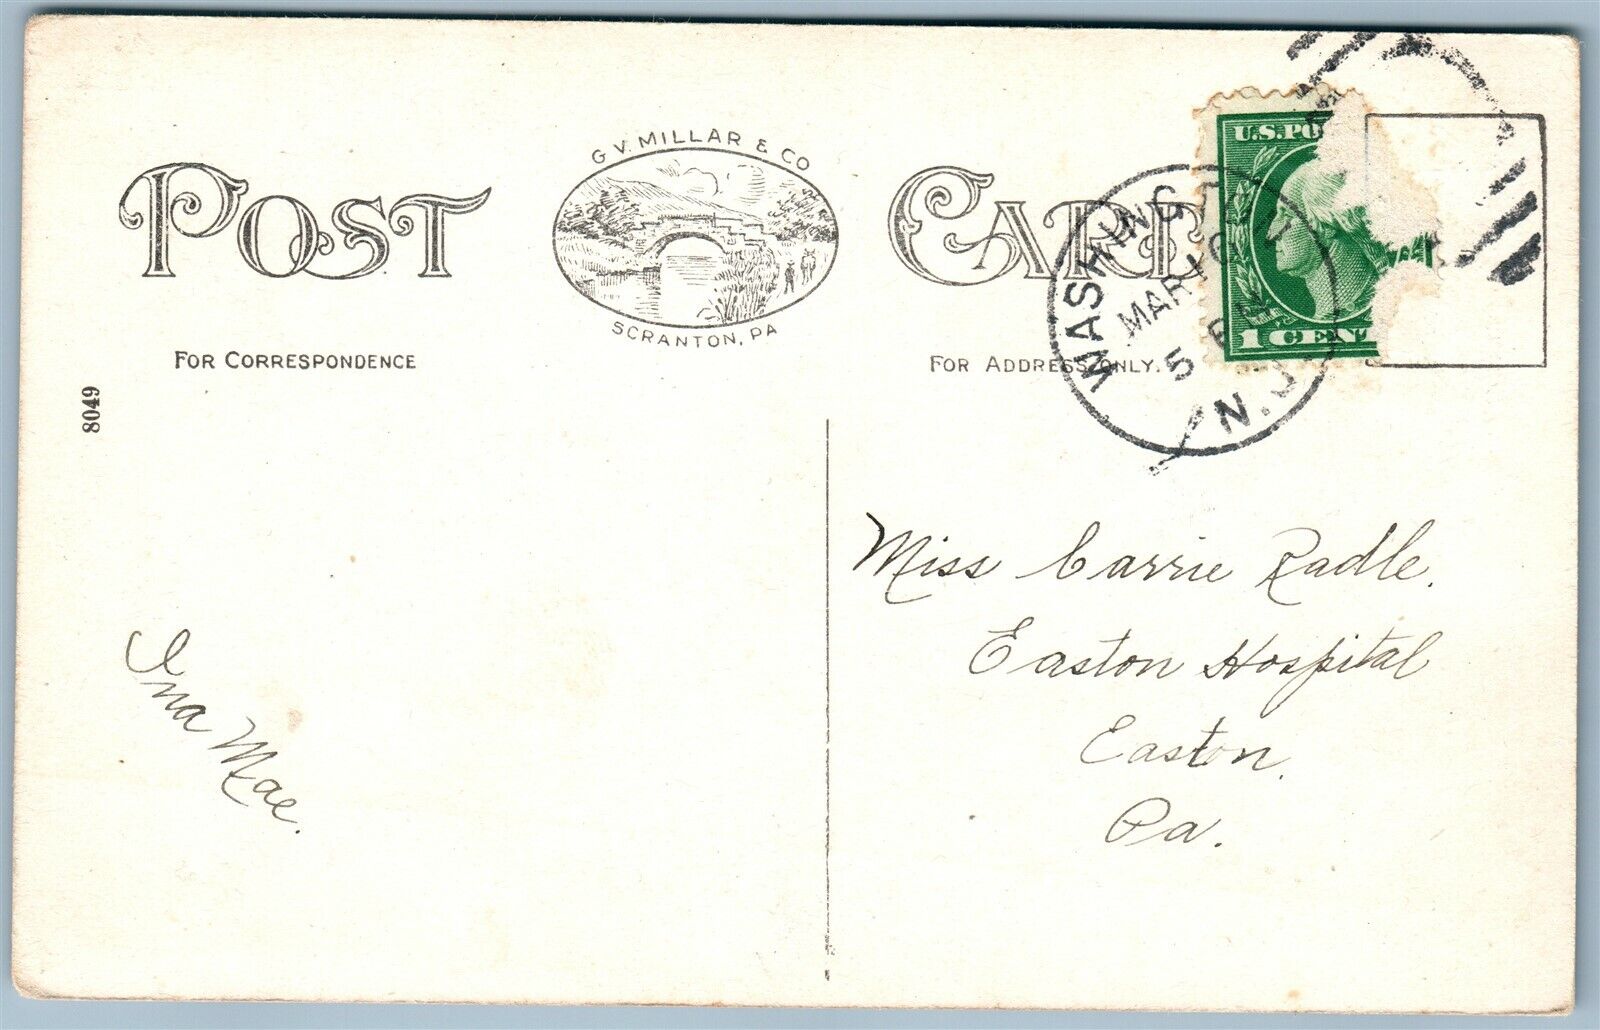 POST CARD
G.V. MILLAR & CO
SCRANTON, PA
FOR CORRESPONDENCE
FOR ADDRESS ONLY.
8049
U.S.PO
1 CENT
WASHINGTON
MAR 10
5 PM
N.J.
Miss Carrie Radle.
Easton Hospital
Easton,
Pa.
Ina Mae.